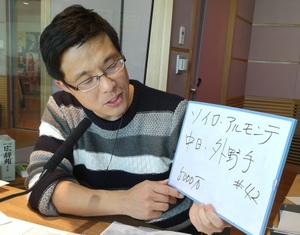 ソイロ・アルモンテ
中日・外野手
5000万
#42
広辞苑